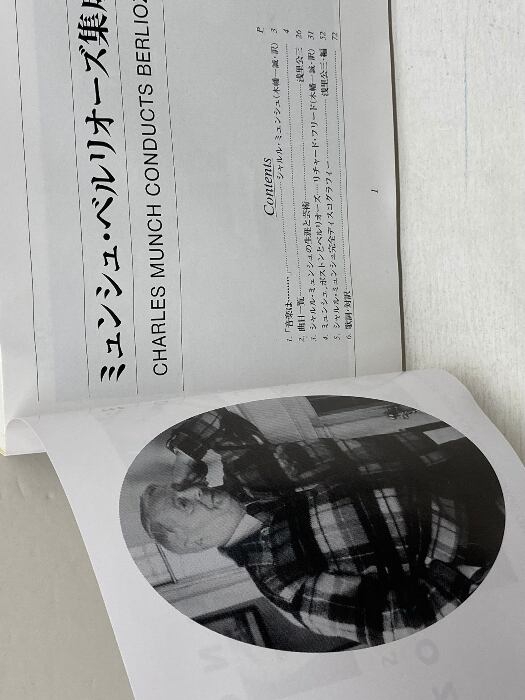 ミュンシュ・ベルリオーズ集成
CHARLES MUNCH CONDUCTS BERLIOZ
Contents
P
1. 「音楽は………」 シャルル・ミュンシュ（木幡一誠・訳） 3
2. 曲目一覧 4
3. シャルル・ミュンシュの生涯と芸術 浅里公三 26
4. ミュンシュ、ボストンとベルリオーズ リチャード・フリード（木幡一誠・訳） 31
5. シャルル・ミュンシュ完全ディスコグラフィー 浅里公三・編 52
6. 歌詞・対訳 72
1